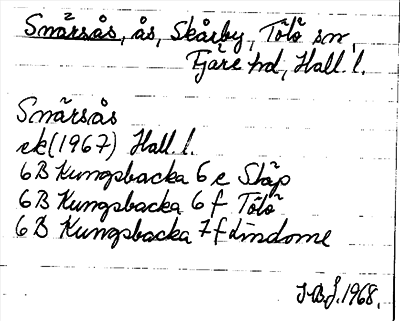 Snärsås, ås, Skårby, Tölö sn,
Fjäre hd, Hall. l.
Snärsås
ek (1967) Hall. l.
6B Kungsbacka 6 e Släp
6B Kungsbacka 6 f Tölö
6B Kungsbacka 7 f Lindome
1968.